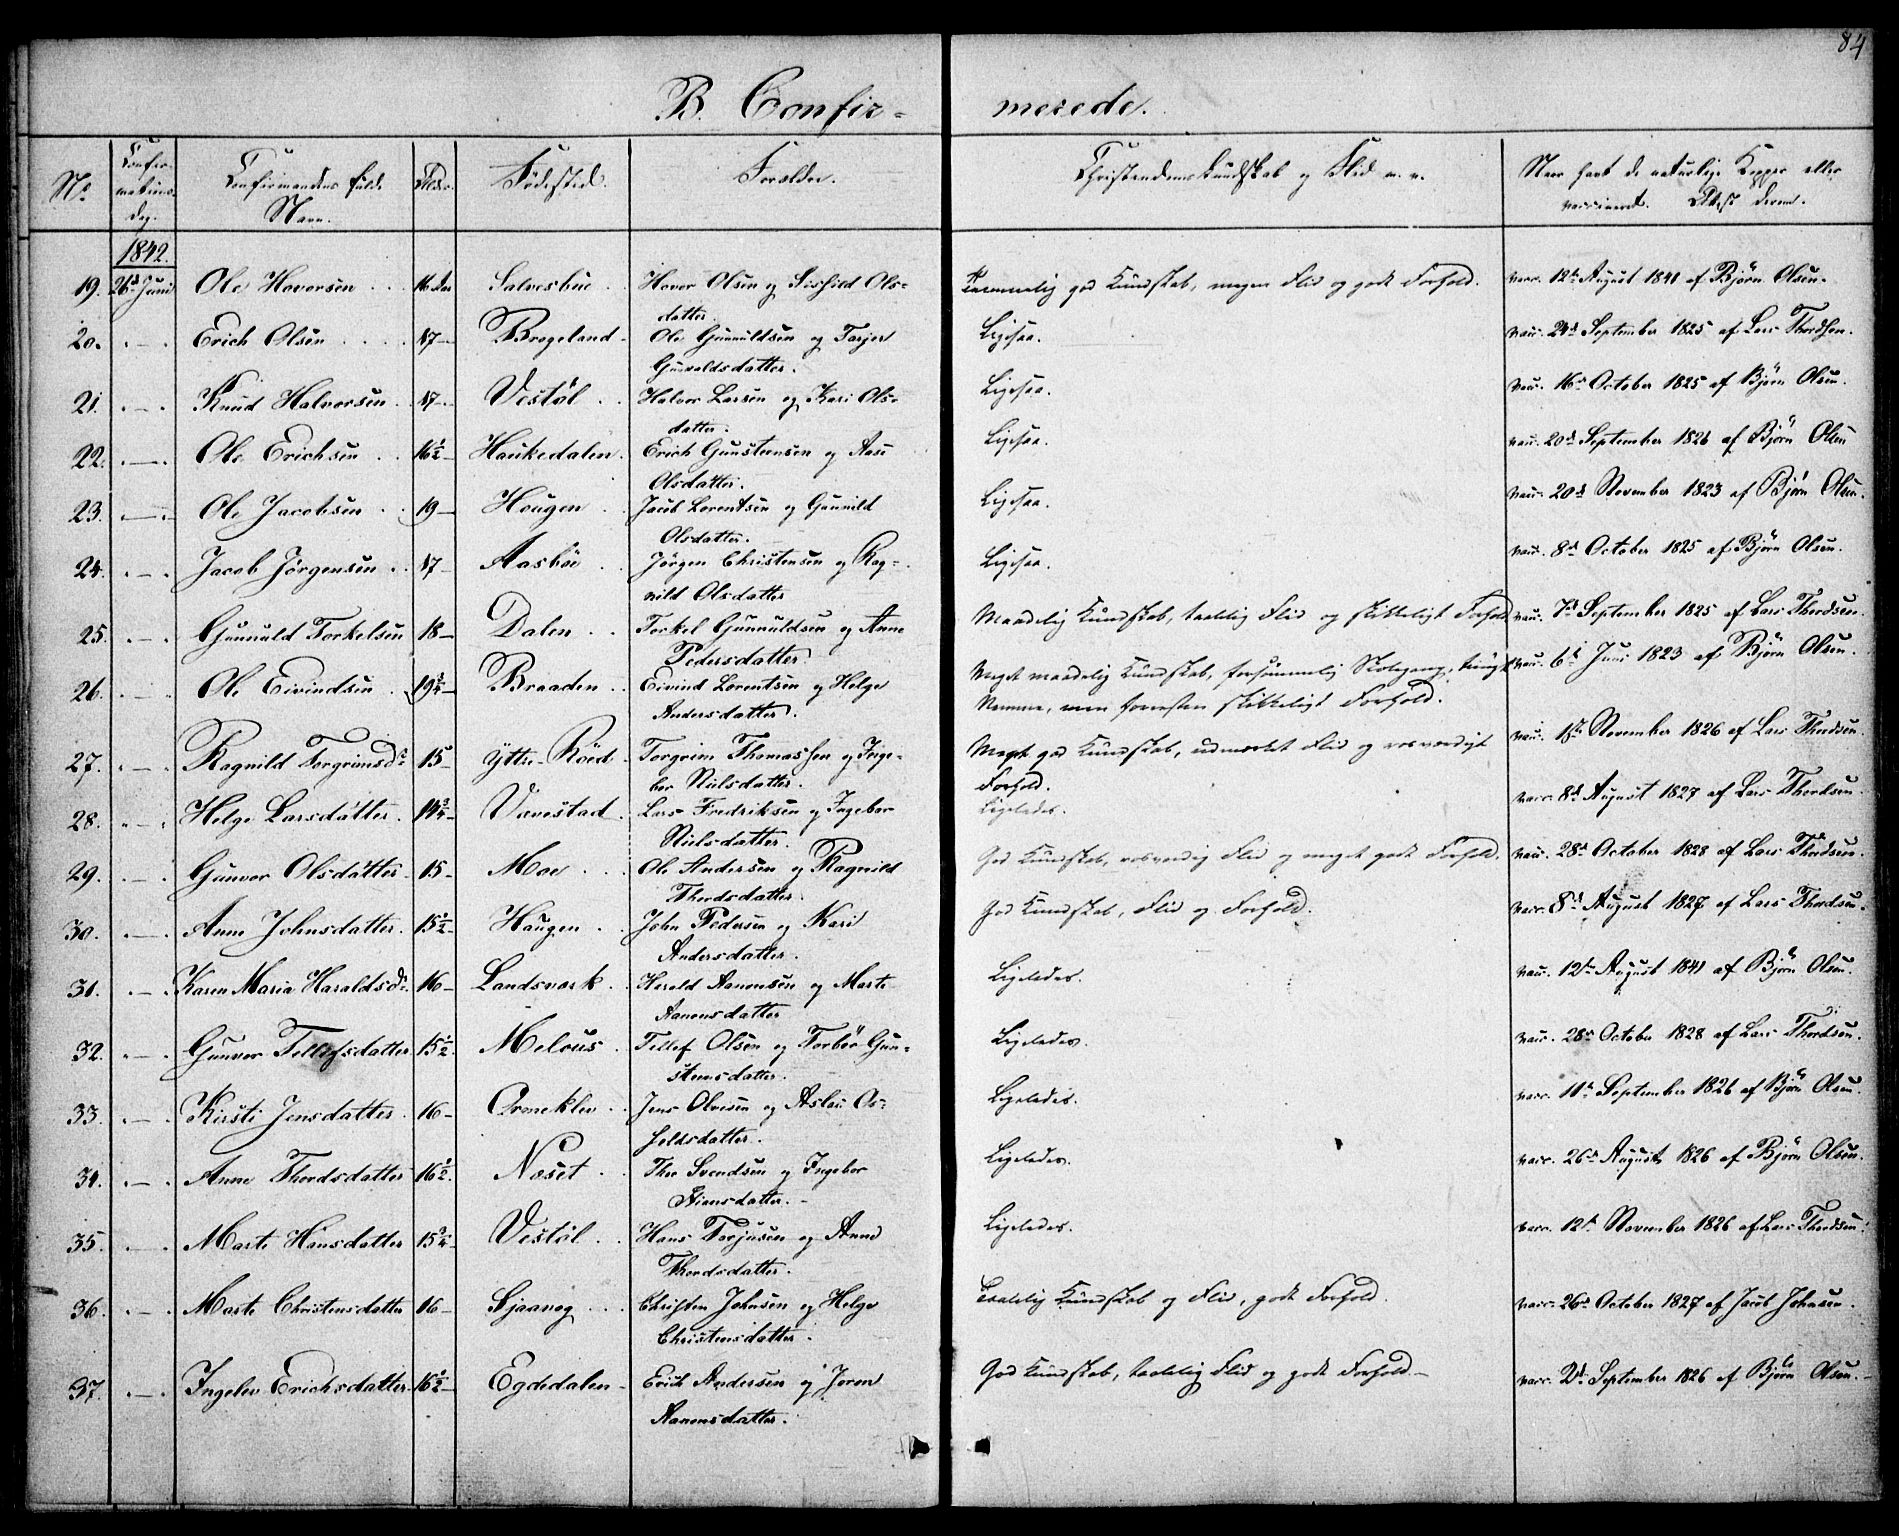 84
B. Confir- merede.
No. Confirmations Dag. Confirmandens fulde Navn. Alder. Födested. Forældre. Christendoms Kundskab og Flid m. v. Naar havt de naturlige Kopper eller vaccineret. Attest derom.
1842.
19. 26de Juni Ole Hovorsen 16 Aar Salvesbue Hovor Olsen og Ols- Temmelig god Kundskab, megen Flid og godt Forhold. vacc. 12te August 1841 af Björn Olsen.
datter.
20. Erich Olsen 17 Brogeland Ole Gunnuldsen og Torjer Ligesaa. vacc. 24de September 1825 af Lars Thordsen.
Gunvaldsdatter.
21. Knud Halvorsen 17 Vestöl Halvor Larsen og Kari Ols- Ligesaa. vacc. 16de October 1825 af Björn Olsen.
datter.
22. Ole Erichsen 16½ Haukedalen Erich Gunsteensen og Aase Ligesaa. vacc. 20de September 1826 af Björn Olsen
Olsdatter.
23. Ole Jacobsen 19 Hougen Jacob Lorentsen og Gunnild Ligesaa. vacc. 20de November 1823 af Björn Olsen.
Olsdatter.
24. Jacob Jörgensen 17 Aasböe Jörgen Christensen og Rag- Ligesaa. vacc. 8de October 1825 af Björn Olsen.
nild Olsdatter
25. Gunnuld Torkelsen 18 Dalen Torkel Gunnuldsen og Anne Maadelig Kundskab, taalelig Flid og skikkeligt Forhold vacc. 7de September 1825 af Lars Thordsen.
Pedersdatter.
26. Ole Eivindsen 19¾ Braaden Eivind Lorentsen og Helge Meget maadelig Kundskab, forsömmelig Skolegang, tungt vacc. 6te Juni 1823 af Björn Olsen.
Andersdatter. Nemme, men forresten skikkeligt Forhold.
27. Ragnild Torgrimsdr. 15 Yttre-Röed Torgrim Thomassen og Inge- Meget god Kundskab, udmærket Flid og rosværdigt vacc. 15de November 1826 af Lars Thordsen.
bor Nielsdatter. Forhold.
28. Helge Larsdatter 14¾ Vævestad Lars Fredriksen og Ingebor Ligeledes. vacc. 8de August 1827 af Lars Thordsen.
Nielsdatter.
29. Gunvor Olsdatter 15 Moe Ole Andersen og Ragnild God Kundskab, rosværdig Flid og meget godt Forhold. vacc. 28de October 1828 af Lars Thordsen.
Thordsdatter.
30. Anne Johnsdatter 15½ Haugen John Pedersen og Kari God Kundskab, Flid og Forhold. vacc. 8de August 1827 af Lars Thordsen.
Andersdatter.
31. Karen Maria Haraldsdr. 16 Landsværk Harald Aanonsen og Marte Ligeledes. vacc. 12te August 1841 af Björn Olsen.
Aanonsdatter
32. Gunvor Tellefsdatter 15½ Melaas Tellef Olsen og Torbör Gun- Ligeledes. vacc. 28de October 1828 af Lars Thordsen.
steensdatter.
33. Kirsti Jensdatter 16 Ormeklev Jens Olvesen og Aslau Os- Ligeledes. vacc. 10de September 1826 af Björn Olsen.
holdsdatter.
34. Anne Thordsdatter 16½ Næset Thor Svendsen og Ingebor Ligeledes. vacc. 26de August 1826 af Björn Olsen.
35. Marte Hansdatter 15¾ Vestöl Hans Torjusen og Anne Ligeledes. vacc. 12te November 1826 af Lars Thordsen.
Thordsdatter.
36. Marte Christensdatter 16 Sjaavaag Christen Johnsen og Helge Taalelig Kundskab og Flid, godt Forhold. vacc. 26de October 1827 af Jacob Johnsen.
Christensdatter.
37. Ingelev Erichsdatter 16½ Egdedalen Erich Andersen og Joren God Kundskab, taalelig Flid og godt Forhold. vacc. 2de September 1826 af Björn Olsen.
Aanonsdatter.